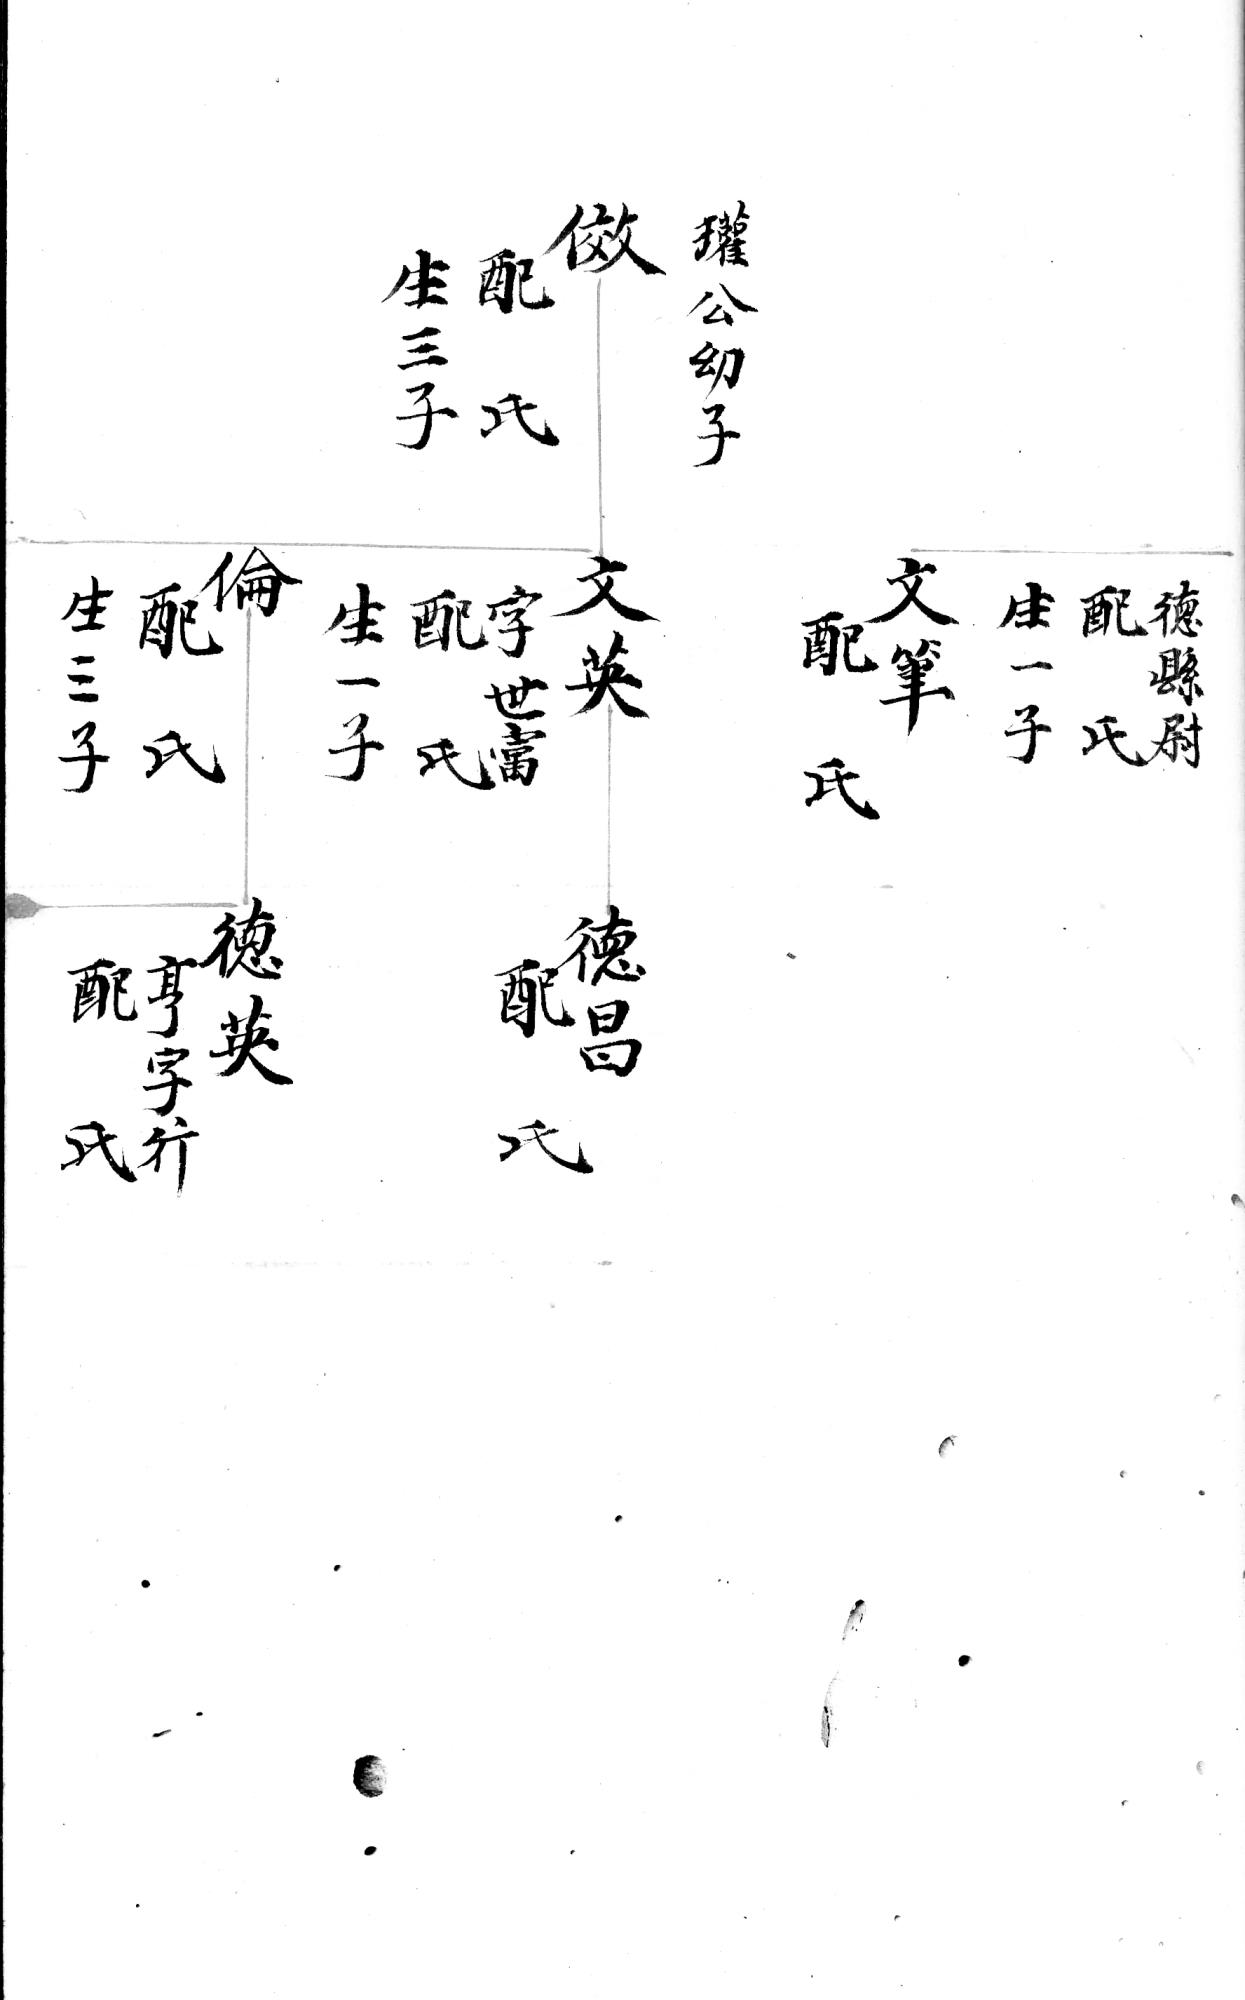 瓘公幼子
傚
配 氏
生三子
德縣尉
配 氏
生一子
文筆
配 氏
文英
字世富
配 氏
生一子
倫
配 氏
生三子
德昌
配 氏
德英
亨字行
配 氏